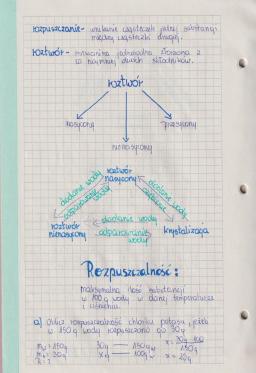 rozpuszczanie - wnikanie cząsteczek jednej substancji
między cząsteczki drugiej.
roztwór - mieszanina jednorodna złożona z
co najmniej dwóch składników.
roztwór
nasycony
przesycony
nienasycony
roztwór
nasycony
dodanie wody
odparowanie wody
dodanie
wody
roztwór
nienasycony
dodanie wody
odparowanie
wody
krystalizacja
Rozpuszczalność:
maksymalna ilość substancji
w 100g wody w danej temperaturze
i ciśnieniu.
a) Oblicz rozpuszczalność chlorku potasu, jeżeli
w 150g wody rozpuszczono go 30g
mw = 150g
30g — 150g
x = 30g · 100 / 150g
xg — 100g
x = 20g